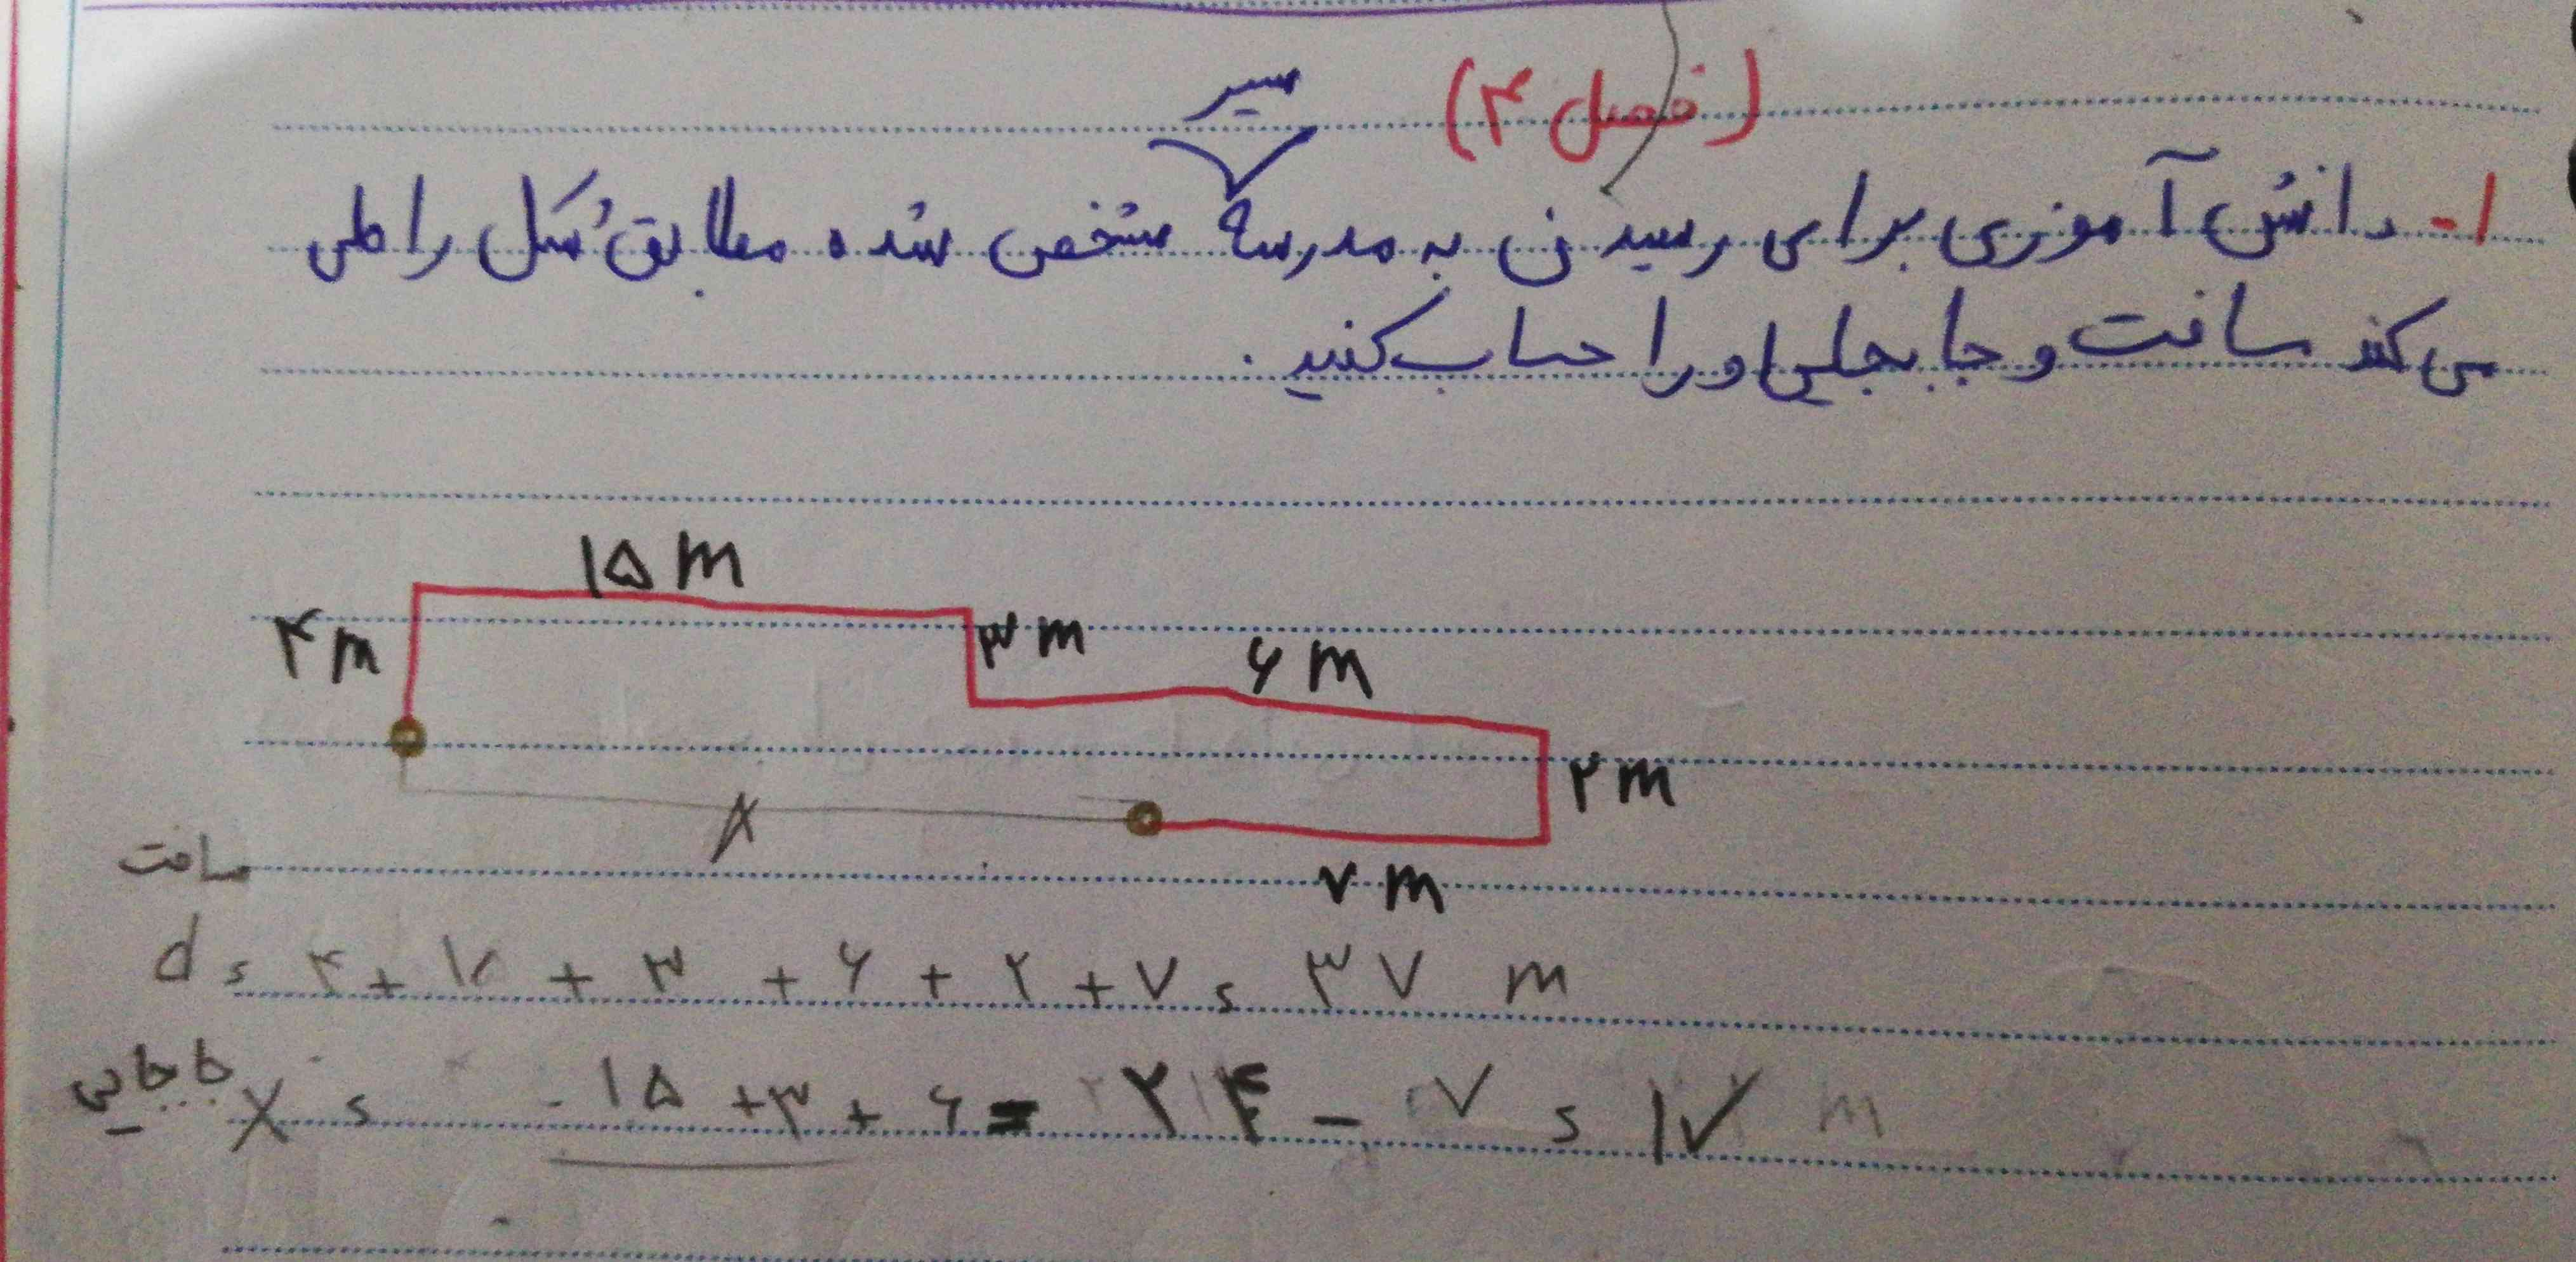 (فصل ۴)
مسیر
۱- دانش آموزی برای رسیدن به مدرسه مشخص شده مطابق شکل را طی
می کند مسافت و جا بجایی او را حساب کنید.
۱۵ m
۴ m
۳ m
۶ m
۲ m
x
۷ m
مسافت
d = ۴ + ۱۵ + ۳ + ۶ + ۲ + ۷ = ۳۷ m
جابجایی x = ۱۵ + ۳ + ۶ = ۲۴ - ۷ = ۱۷ m